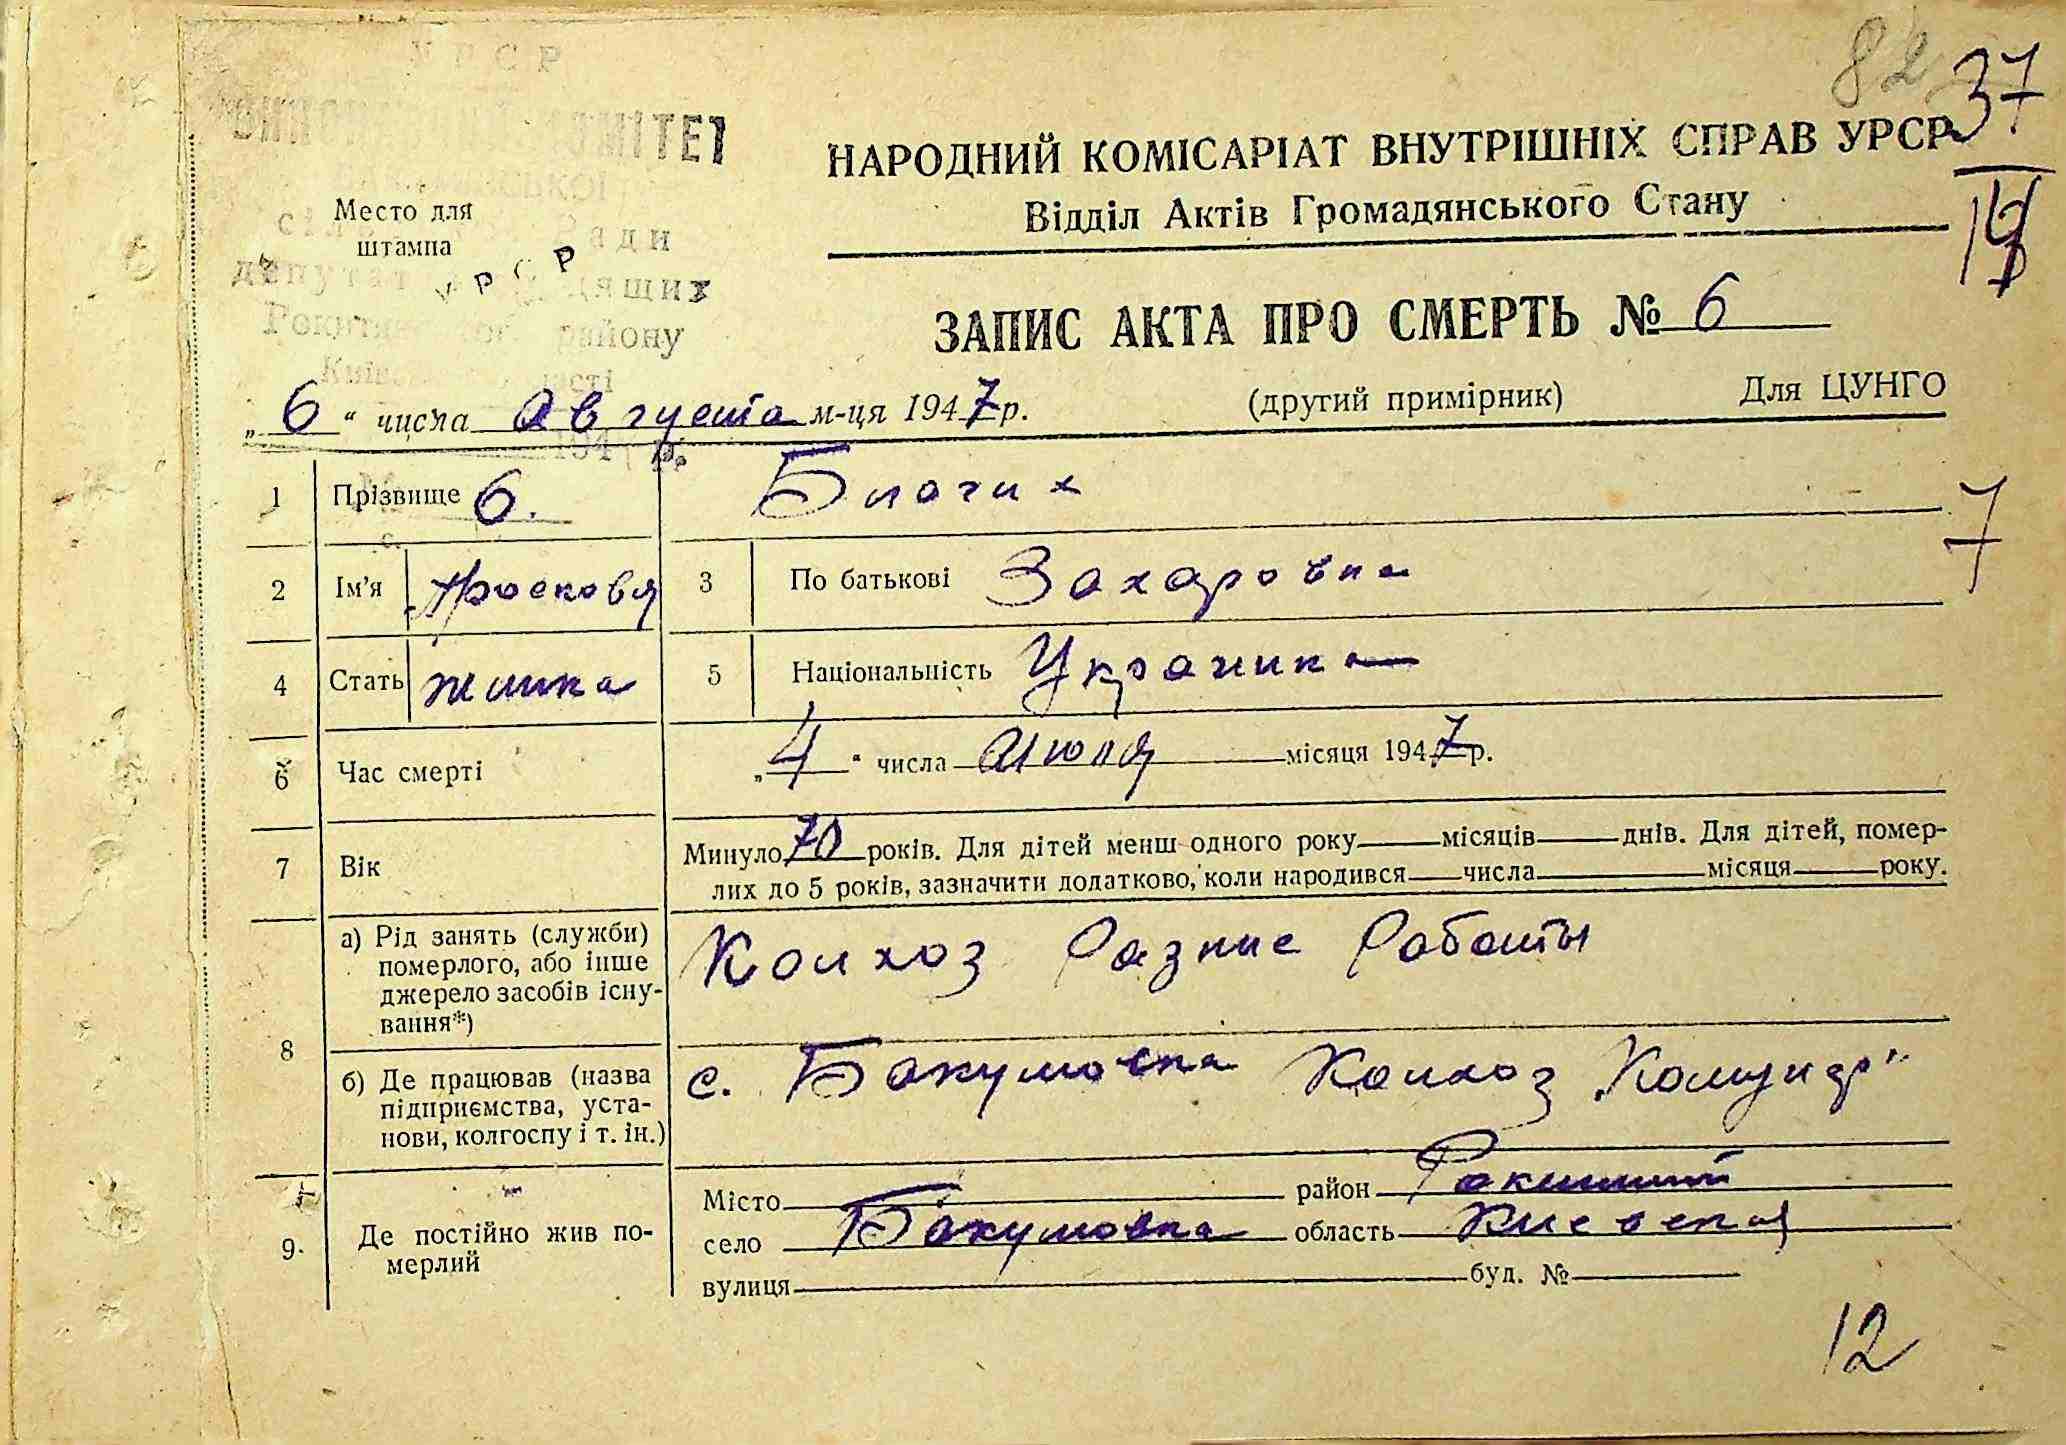 82
37
УРСР
ВИКОНАВЧИЙ КОМІТЕТ
НАРОДНИЙ КОМІСАРІАТ ВНУТРІШНІХ СПРАВ УРСР
Відділ Актів Громадянського Стану
Место для
штампа
сільської Ради
депутатів трудящих
УРСР
Рокитянського району
Київської області
ЗАПИС АКТА ПРО СМЕРТЬ № 6
„6“ числа августа м-ця 1947 р.
(другий примірник) Для ЦУНГО
194 р.
1 Прізвище 6.
7
2 Ім'я Просковя 3 По батькові Захаровна
4 Стать жинка 5 Національність Украинка
6 Час смерті „4“ числа июля місяця 1947 р.
7 Вік Минуло 70 років. Для дітей менш одного року місяців днів. Для дітей, помер-
лих до 5 років, зазначити додатково, коли народився числа місяця року.
8 а) Рід занять (служби)
померлого, або інше
джерело засобів існу-
вання*)
Колхоз Разние Работы
б) Де працював (назва
підприємства, уста-
нови, колгоспу і т. ін.)
с. Бакумовка Колхоз „Комунар"
9. Де постійно жив по-
мерлий
Місто район
село Бакумовка область Киевская
вулиця буд. №
12